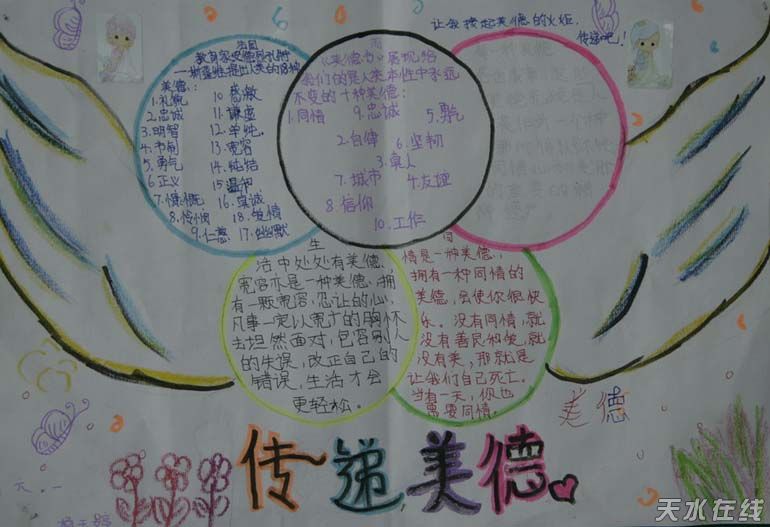 让我接起美德的火炬,
传递吧!
法国
教育家安德烈孔特
斯蓬维提出人类的18种
美德:
1.礼貌
2.忠诚
3.明智
4.节制
5.勇气
6.正义
7.慷慨
8.怜悯
9.仁慈
10.感激
11.谦虚
12.单纯
13.宽容
14.纯洁
15.温和
16.真诚
17.幽默
18.爱情
而
《美德书》展现给
我们的是人类本性中永远
不变的十种美德:
1.同情
9.忠诚
5.勇气
2.自律
6.坚韧
3.责人
7.诚市
4.友谊
8.信仰
10.工作
生
活中处处有美德,
宽容亦是一种美德,拥
有一颗宽容,忍让的心,
凡事一定以宽广的胸怀
去坦然面对,包容别人
的失误,改正自己的
错误,生活才会
更轻松。
同
情是一种美德,
拥有一种同情的
美德,会使你很快
乐。没有同情,就
没有善良和爱,就
没有美,那就是
让我们自己死亡。
当有一天,你也
需要同情。
美德
传递美德
天水在线